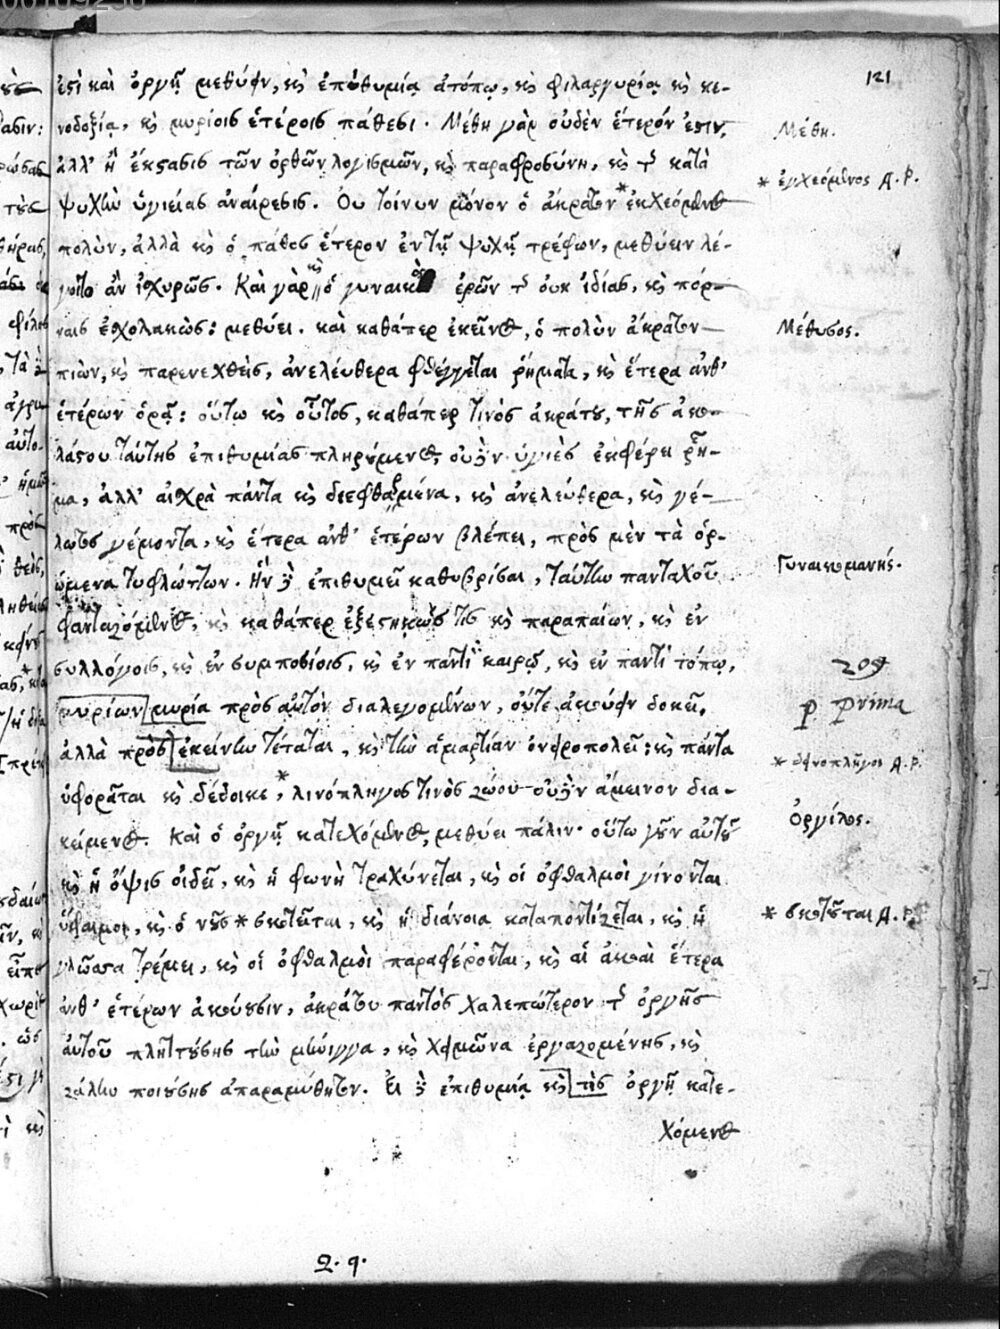 121
ἐστὶ καὶ ὀργῇ μεθύειν, κὶ ἐπιθυμίᾳ ἀτόπῳ, κὶ φιλαργυρίᾳ κὶ κε-
νοδοξίᾳ, κὶ μυρίοις ἑτέροις πάθεσι. Μέθη γὰρ οὐδὲν ἕτερόν ἐστιν,
Μέθη.
ἀλλ' ἢ ἔκστασις τῶν ὀρθῶν λογισμῶν, κὶ παραφροσύνη, κὶ τῆς κατὰ
* ἐγχεόμενος A. P.
ψυχὴν ὑγιείας ἀναίρεσις. Οὐ τοίνυν μόνον ὁ ἄκρατον * ἐκχεόμενος
πολὺν, ἀλλὰ κὶ ὁ πάθος ἕτερον ἐν τῇ ψυχῇ τρέφων, μεθύειν λέ-
γοιτο ἂν ἰσχυρῶς. Καὶ γὰρ κὶ ὁ γυναικὸς ἐρῶν τῆς οὐκ ἰδίας, κὶ πόρ-
ναις ἐσχολακὼς: μεθύει. καὶ καθάπερ ἐκεῖνος, ὁ πολὺν ἄκρατον
Μέθυσος.
πιὼν, κὶ παρενεχθεὶς, ἀνελεύθερα φθέγγεται ῥήματα, κὶ ἕτερα ἀνθ'
ἑτέρων ὁρᾷ: οὕτω κὶ οὗτος, καθάπερ τινὸς ἀκράτου, τῆς ἀκο-
λάστου ταύτης ἐπιθυμίας πληρούμενος, οὐδὲν ὑγιὲς ἐκφέρει ῥῆ-
μα, ἀλλ' αἰσχρὰ πάντα κὶ διεφθαρμένα, κὶ ἀνελεύθερα, κὶ γέ-
λωτος γέμοντα, κὶ ἕτερα ἀνθ' ἑτέρων βλέπει, πρὸς μὲν τὰ ὁρ-
ώμενα τυφλώττων. Ἣν δὲ ἐπιθυμεῖ καθυβρίσαι, ταύτην πανταχοῦ
Γυναικομανής.
φανταζόμενος, κὶ καθάπερ ἐξεστηκώς τις κὶ παραπαίων, κὶ ἐν
συλλόγοις, κὶ ἐν συμποσίοις, κὶ ἐν παντὶ καιρῷ, κὶ ἐν παντὶ τόπῳ,
209
μυρίων μυρία πρὸς αὐτὸν διαλεγομένων, οὔτε ἀκούειν δοκεῖ,
p Prima
ἀλλὰ πρὸς ἐκείνην τέταται, κὶ τὴν ἁμαρτίαν ὀνειροπολεῖ: κὶ πάντα
A. P.
ὑφορᾶται κὶ δέδοικε, * λινόπληγος τινὸς ζώου οὐδὲν ἄμεινον δια-
Ὀργίλος.
κείμενος. Καὶ ὁ ὀργῇ κατεχόμενος, μεθύει πάλιν· οὕτω γοῦν αὐτοῦ
κὶ ἡ ὄψις οἰδεῖ, κὶ ἡ φωνὴ τραχύνεται, κὶ οἱ ὀφθαλμοὶ γίνονται
ὕφαιμοι, κὶ ὁ νοῦς * σκοτεῖται, κὶ ἡ διάνοια καταποντίζεται, κὶ ἡ
* σκοτοῦται A. P.
γλῶσσα τρέμει, κὶ οἱ ὀφθαλμοὶ παραφέρονται, κὶ αἱ ἀκοαὶ ἕτερα
ἀνθ' ἑτέρων ἀκούουσιν, ἀκράτου παντὸς χαλεπώτερον τῆς ὀργῆς
αὐτοῦ πληττούσης τὴν μήνιγγα, κὶ χειμῶνα ἐργαζομένης, κὶ
ζάλην ποιούσης ἀπαραμύθητον. Εἰ δὲ ἐπιθυμίᾳ κὶ τις ὀργῇ κατε-
χόμενος